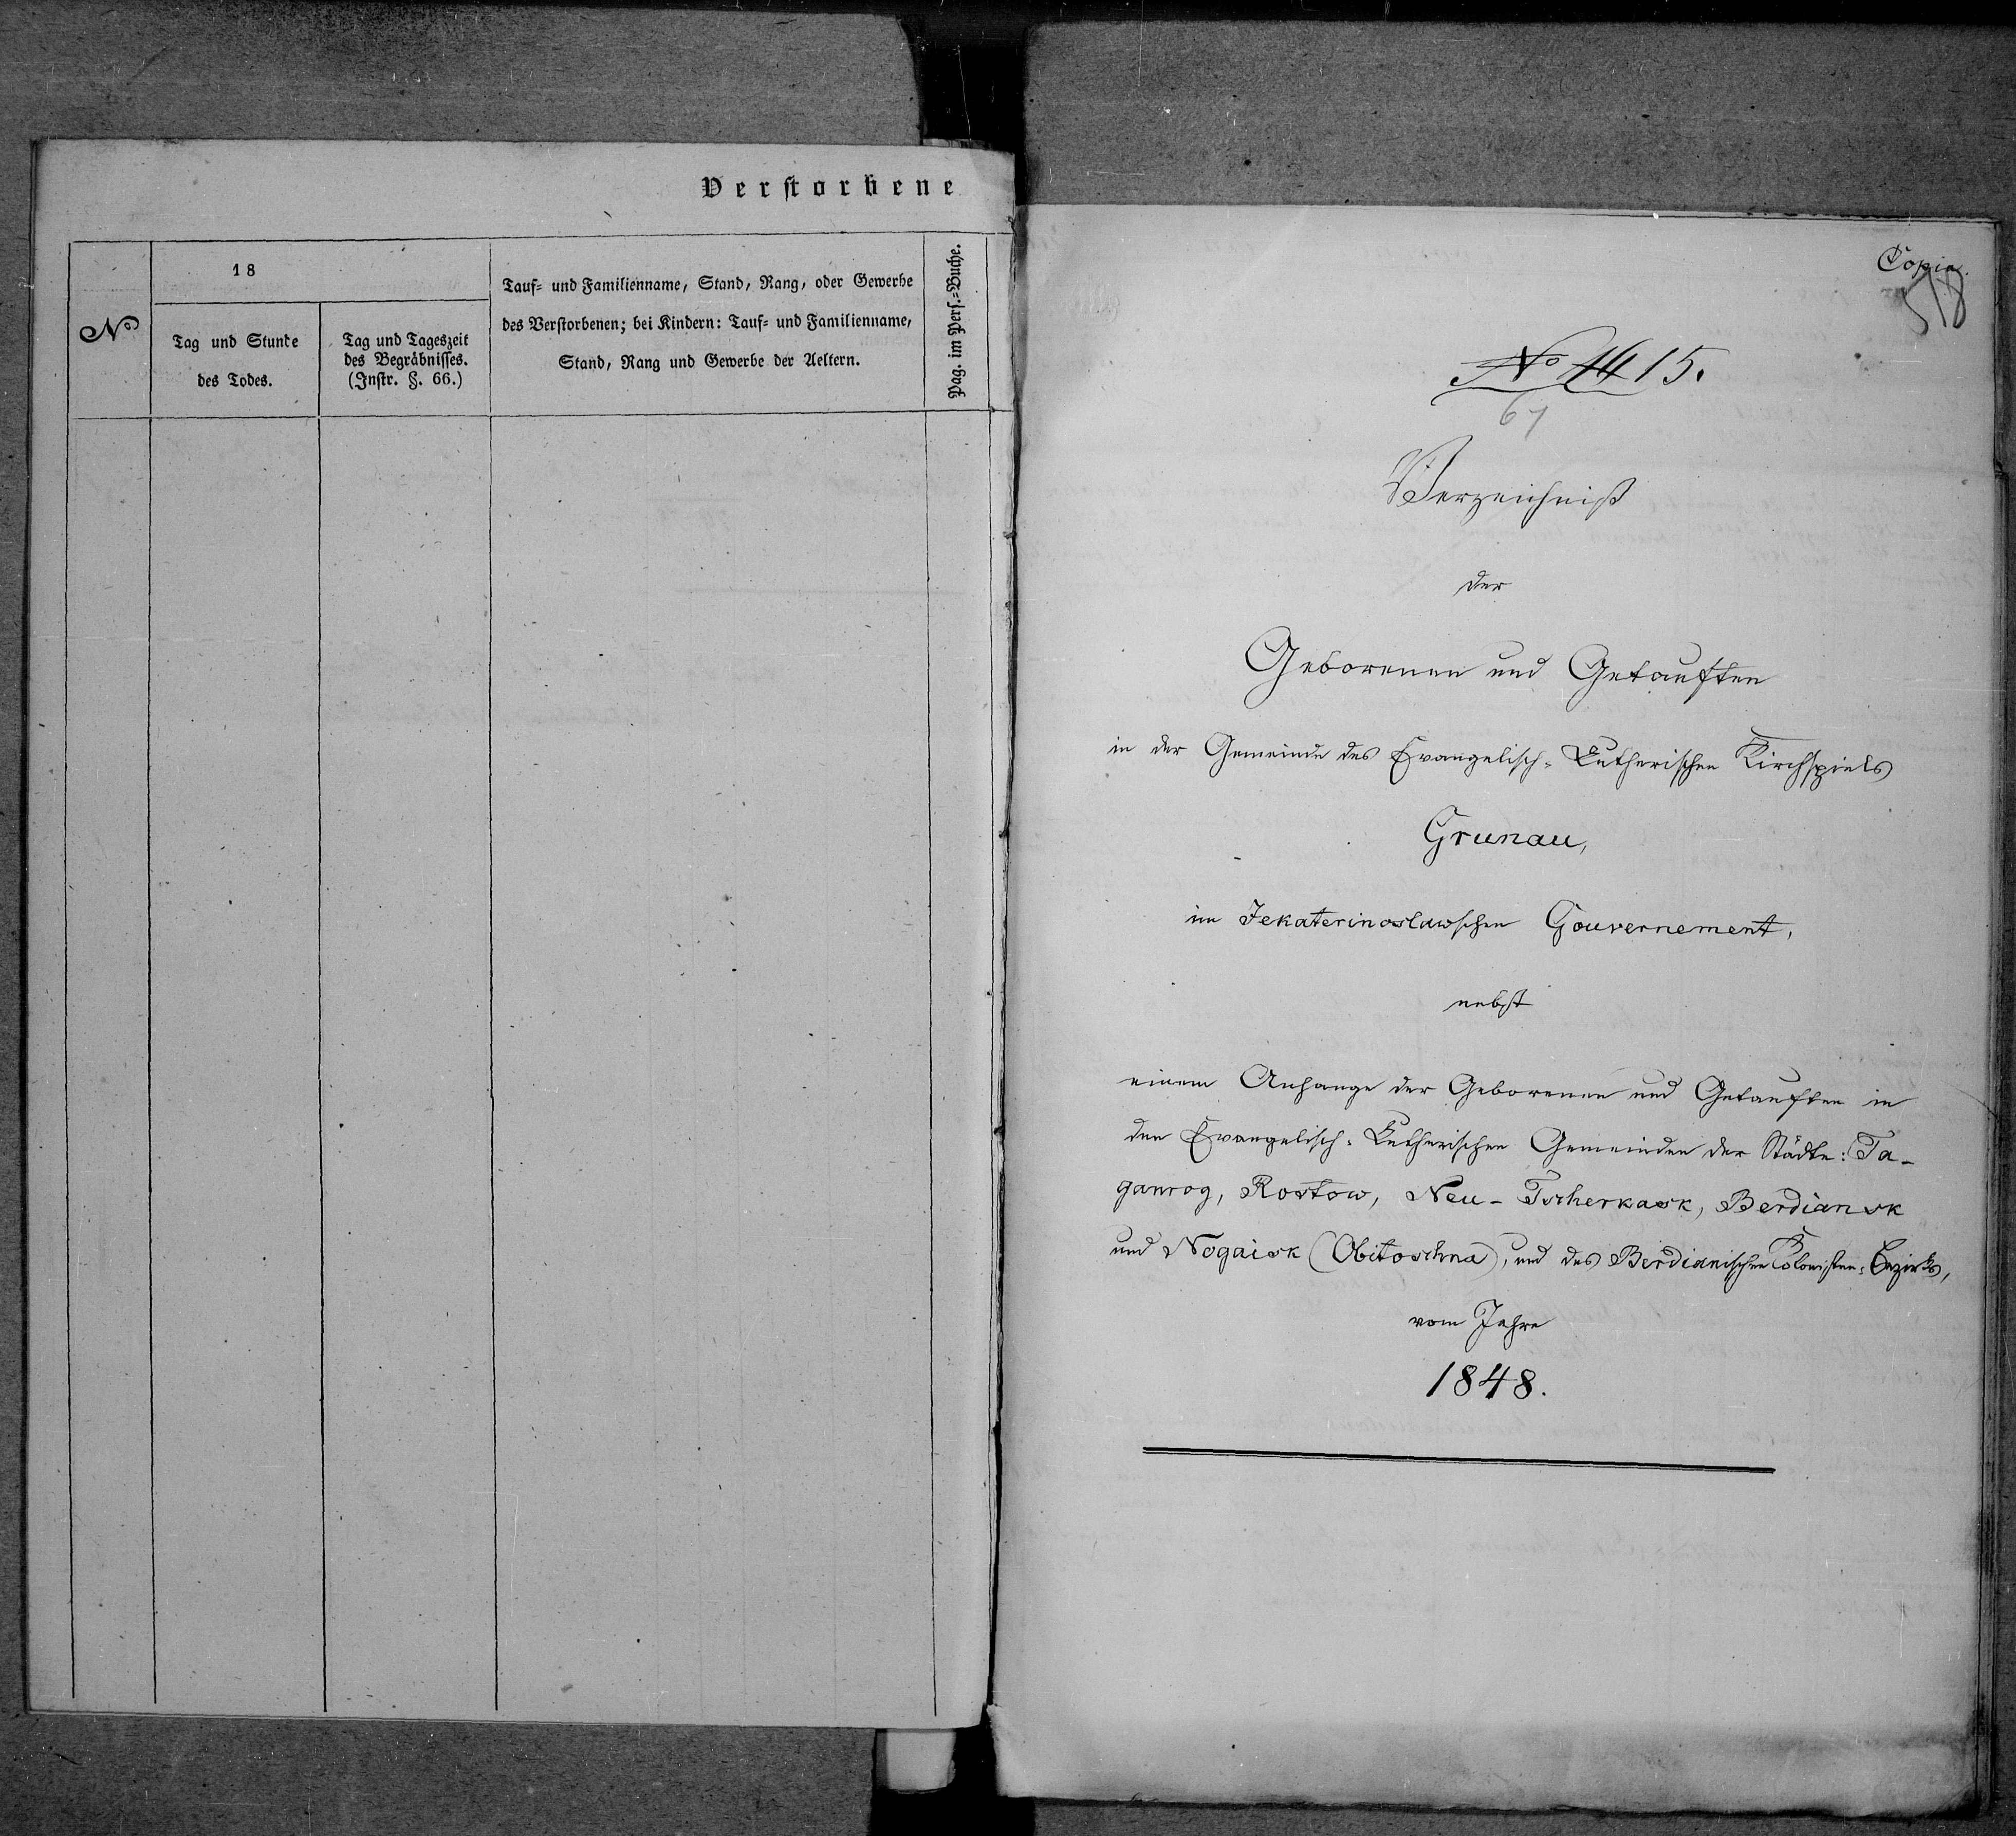 Verstorbene
No
18
Tag und Stunde
des Todes.
Tag und Tageszeit
des Begräbnisses.
(Instr. §. 66.)
Tauf- und Familienname, Stand, Rang, oder Gewerbe
des Verstorbenen; bei Kindern: Tauf- und Familienname,
Stand, Rang und Gewerbe der Aeltern.
Pag. im Pers.-Buche.
Copia.
518
No 15.
67
Verzeichniß
der
Geborenen und Getauften
in der Gemeinde des Evangelisch-Lutherischen Kirchspiels
Grunau,
im Jekaterinoslawschen Gouvernement,
nebst
einem Anhange der Geborenen und Getauften in
den Evangelisch-Lutherischen Gemeinden der Städte: Ta-
ganrog, Rostow, Neu-Tscherkask, Berdiansk
und Nogaisk (Obitoschna), und des Berdianischen Kolonisten-Bezirks,
vom Jahre
1848.